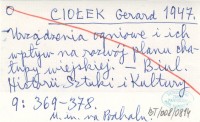 CIOŁEK Gerard 1947.
Urządzenia ogniowe i ich
wpływ na rozwój planu cha-
łupy wiejskiej. – Biul.
Historii Sztuki i Kultury
9 : 369–378.
M. in. na Podhalu